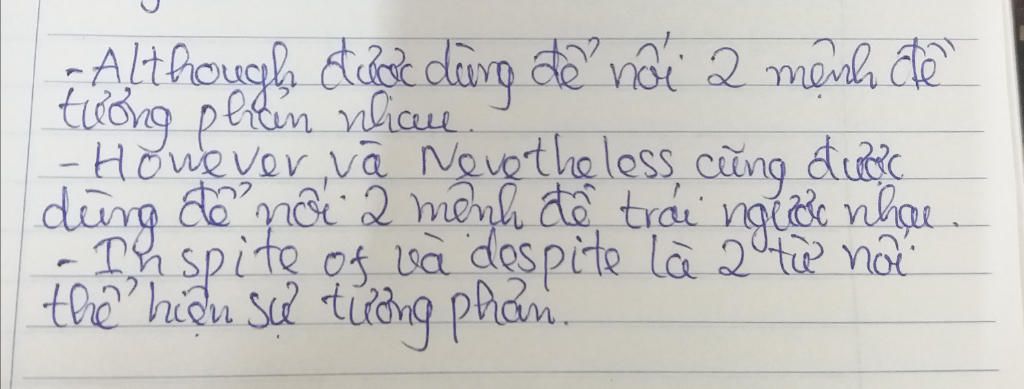 - Although được dùng để nối 2 mệnh đề
tương phản nhau.
- However, và Nevetheless cũng được
dùng để nối 2 mệnh đề trái ngược nhau.
- In spite of và despite là 2 từ nối
thể hiện sự tương phản.